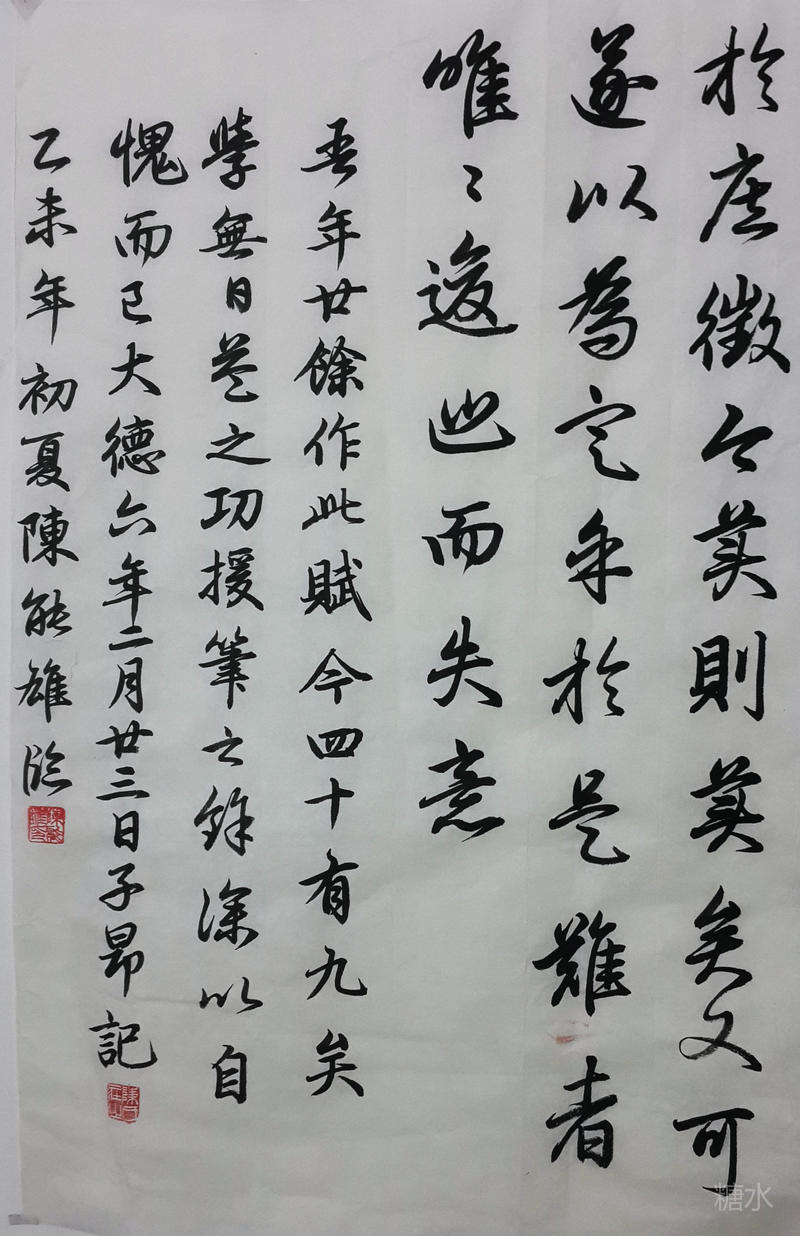 於庶徵今美則美矣又可
遂以為定乎於是難者
唯〻逡巡而失意
吾年廿餘作此賦今四十有九矣
學無日益之功援筆之餘深以自
愧而已大德六年二月廿三日子昂記
乙未年初夏陳能雄臨
糖水